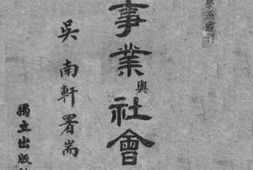 事業與社會
吳南軒署耑
獨立出版